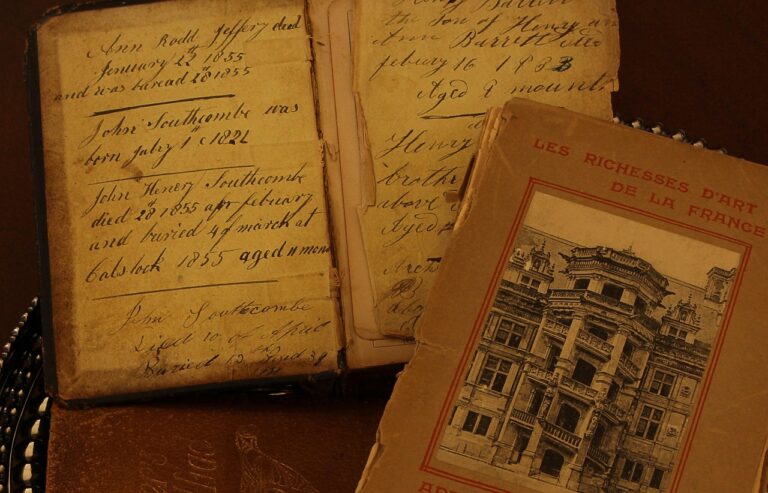 Ann Rodd Jeffery died
January 22th 1855
and was buread 28 1855
John Southcombe was
born July 1st 1821
John Henery Southcombe
died 28th 1855 apr febuary
and buried 4 of march at
Calstock 1855 aged 11 mon
John Southcombe
Died 10 of April
Buried 13
Henry Barrett
the Son of Henry an
Ann Barrett died
febuary 16 1883
Aged 8 mounth
Henry
brothe
above
Aged
LES RICHESSES D'ART
DE LA FRANCE